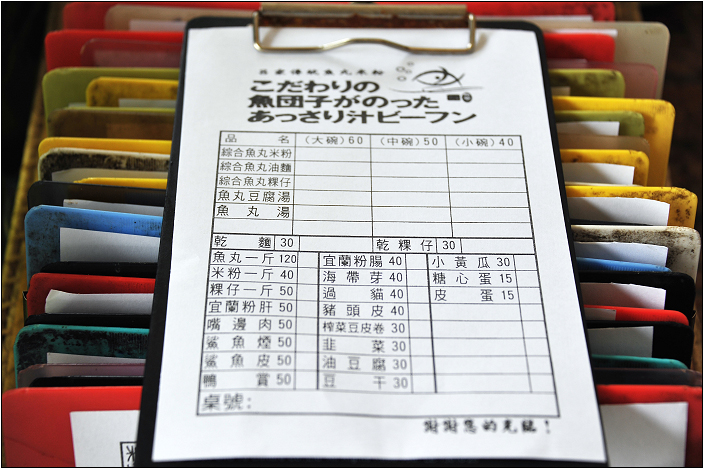 呂家傳統魚丸米粉
こだわりの
魚団子がのった
あっさり汁ビーフン
品名 (大碗)60 (中碗)50 (小碗)40
綜合魚丸米粉
綜合魚丸油麵
綜合魚丸粿仔
魚丸豆腐湯
魚丸湯
乾麵 30 乾粿仔 30
魚丸一斤 120 宜蘭粉腸 40 小黃瓜 30
米粉一斤 40 海帶芽 40 糖心蛋 15
粿仔一斤 50 過貓 40 皮蛋 15
宜蘭粉肝 50 豬頭皮 40
嘴邊肉 50 榨菜豆皮卷 30
鯊魚煙 50 韭菜 30
鯊魚皮 50 油豆腐 30
鴨賞 50 豆干 30
桌號:
謝謝您的光臨!
米